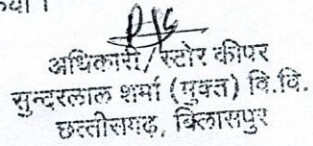 अधिकारी/स्टोर कीपर
सुन्दरलाल शर्मा (मुक्त) वि.वि.
छत्तीसगढ़, बिलासपुर